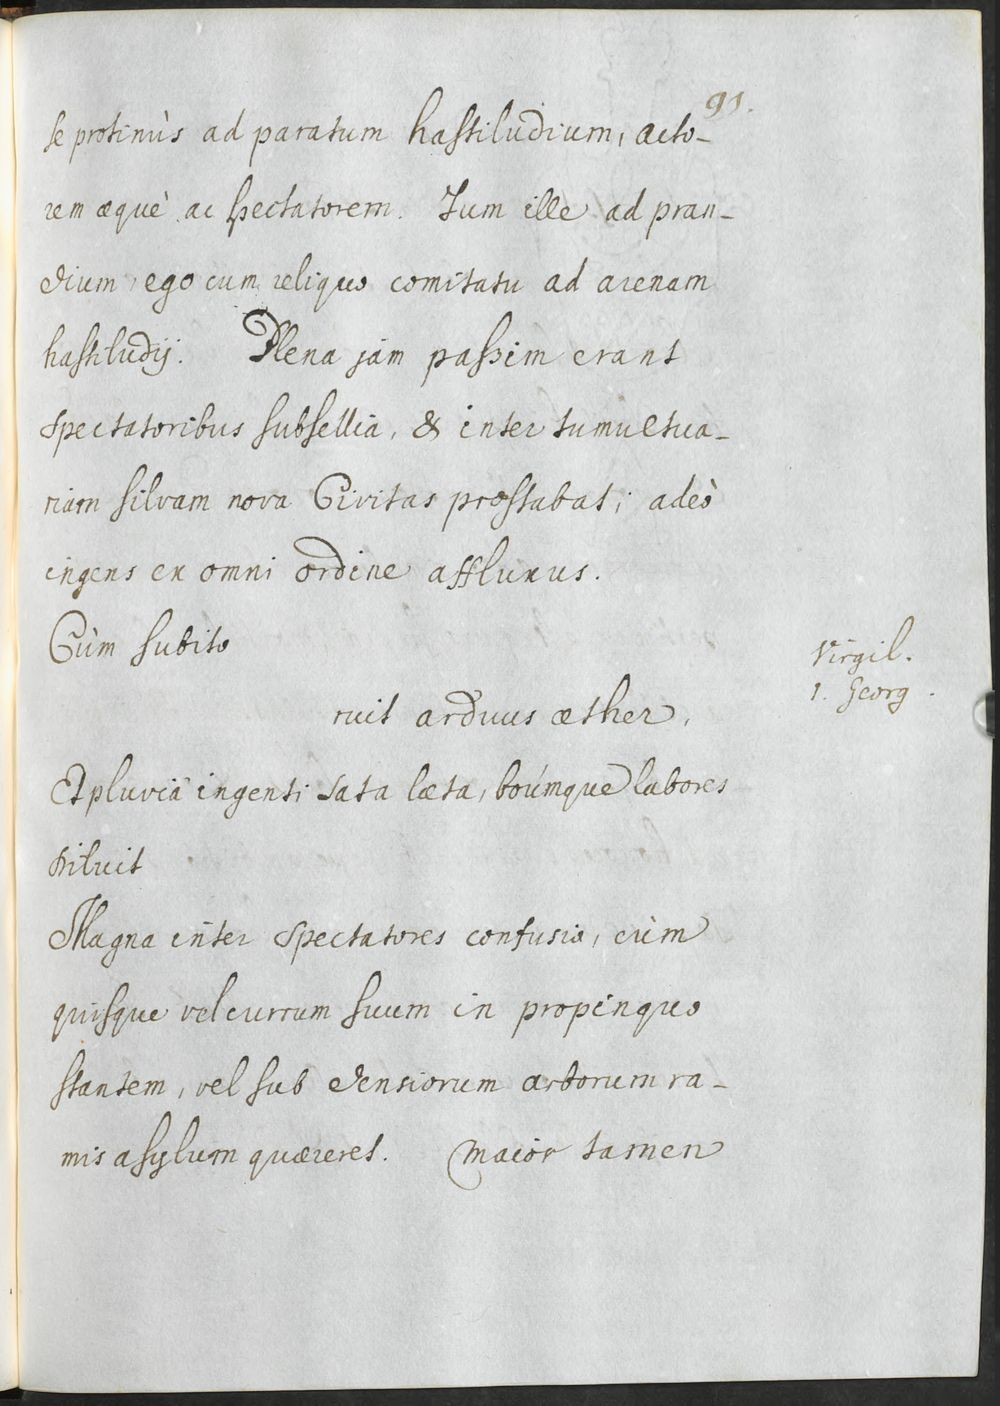 91.
se protinùs ad paratum hastiludium, acto-
rem æquè ac spectatorem. Tum ille ad pran-
dium, ego cum reliquo comitatu ad arenam
hastiludij. Plena jàm passim erant
spectatoribus subsellia, & inter tumultua-
riam silvam nova Civitas prostabat; adeò
ingens ex omni ordine affluxus.
Cùm subito
Virgil.
1. Georg.
ruit arduus æther,
Et pluviâ ingenti sata læta, boúmque labores
diluit
Magna inter spectatores confusio, cùm
quisque vel currum suum in propinquo
stantem, vel sub densiorum arborum ra-
mis asylum quæreret. Maior tamen